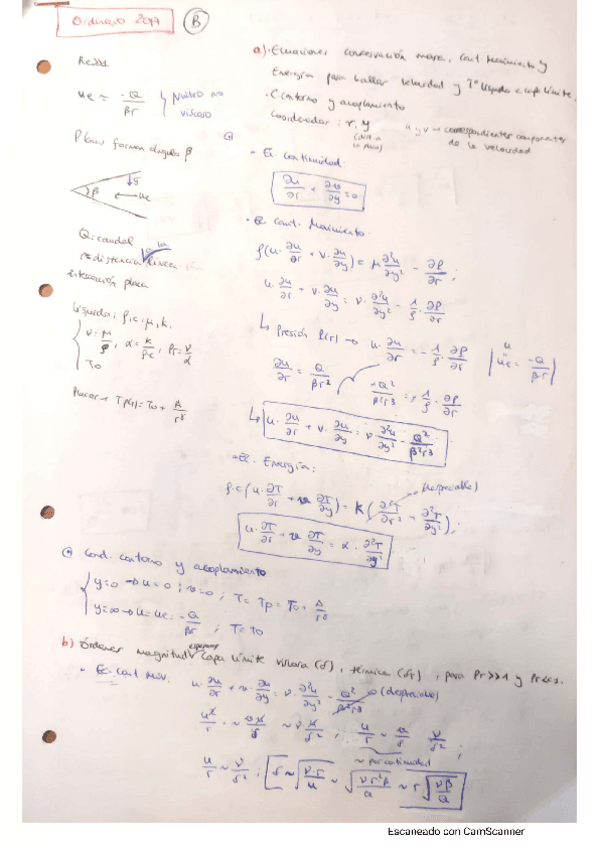 Ordinario 2017
B
Re>>1
ue ≈ -Q/βr } Núcleo no viscoso
Placas forman ángulo β
β
g
← ue
Q: caudal
r: distancia línea
intersección placa
Líquido: ρ, c, μ, k.
ν = μ/ρ, α = k/ρc, Pr = ν/α
T0
Placas → Tp(r) = T0 +
a) · Ecuaciones conservación masa, cant. movimiento y
Energía para hallar velocidad y Tª líquido capa límite.
· C. contorno y acoplamiento
Coordenadas: r, y
u y v → correspondientes componentes
de la velocidad
• Ec. continuidad:
∂u/∂r + ∂v/∂y = 0
• Ec. Cant. Movimiento:
ρ(u·∂u/∂r + v·∂u/∂y) = μ ∂²u/∂y² - ∂P/∂r ;
u·∂u/∂r + v·∂u/∂y = ν·∂²u/∂y² - 1/ρ·∂P/∂r
↳ Presión P(r) → u·∂u/∂r = -1/ρ·∂P/∂r
ue = -Q/βr
∂u/∂r = Q/βr²
-Q²/β²r³ = -1/ρ·∂P/∂r
↳ u·∂u/∂r + v·∂u/∂y = ν·∂²u/∂y² - Q²/β²r³
• Ec. Energía:
(despreciable)
ρ·c(u·∂T/∂r + v·∂T/∂y) = k(∂²T/∂r² + ∂²T/∂y²);
u·∂T/∂r + v·∂T/∂y = α·∂²T/∂y²
Cond. contorno y acoplamiento
y=0 → u=0 ; v=0 ; T = Tp = T0 +
y=∞ → u=ue= -Q/βr ; T=T0
b) Órdenes magnitud espesor capa límite viscosa (δ), térmica (δT), para Pr>>1 y Pr<<1.
• Ec. Cant. Mov. u·∂u/∂r + v·∂u/∂y = ν·∂²u/∂y² - Q²/β²r³ → 0 (despreciable)
u²/r ~ v·u/δ ~ ν·u/δ² ; u/r ~ v/δ ν/δ² ;
~ por continuidad
u/r ~ ν/δ² ; δ ~ √(ν·r/u) ~ √(νr²β/Q) ~ r√(νβ/Q)
Escaneado con CamScanner